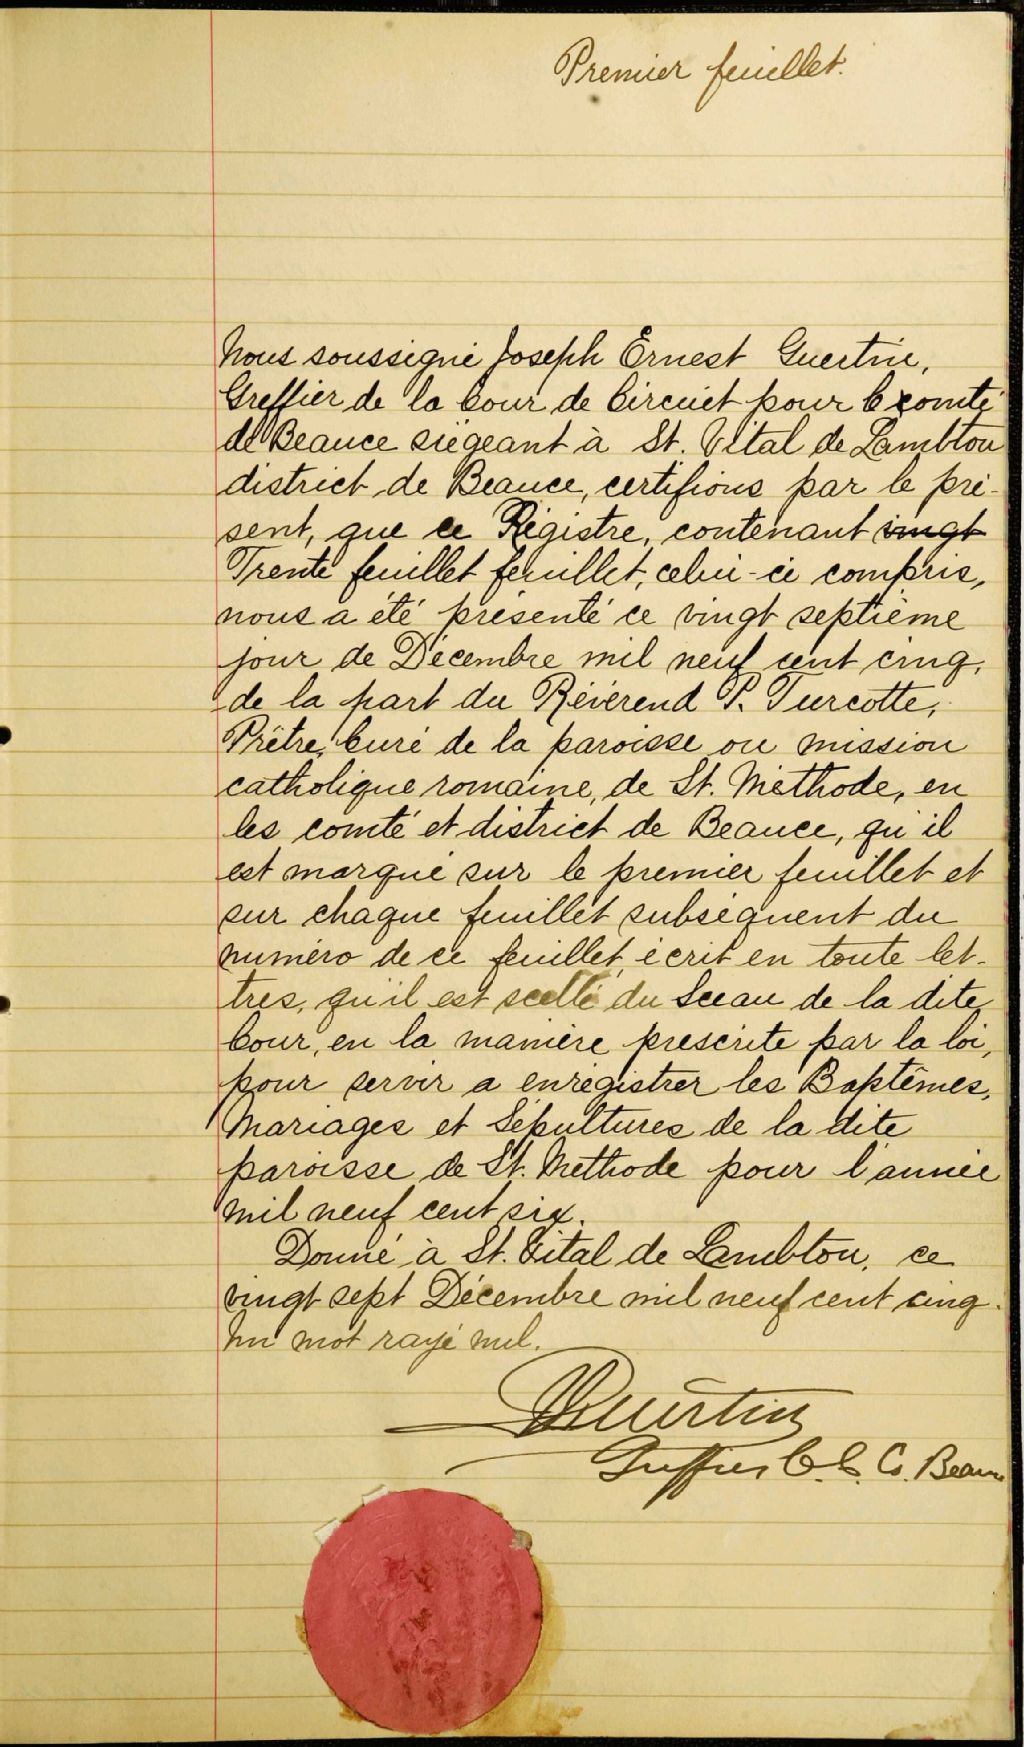 Premier feuillet.
Nous soussigné Joseph Ernest Guertin,
Greffier de la Cour de Circuit pour le comté
de Beauce siégeant à St. Vital de Lambton
district de Beauce, certifions par le pré-
sent, que ce Régistre, contenant vingt
Trente feuillet feuillet, celui-ci compris,
nous a été présenté ce vingt septième
jour de Décembre mil neuf cent cinq,
de la part du Révérend P. Turcotte,
Prêtre, Curé de la paroisse ou mission
catholique romaine, de St. Méthode, en
les comté et district de Beauce, qu'il
est marqué sur le premier feuillet et
sur chaque feuillet subséquent du
numéro de ce feuillet, écrit en toute let-
tres, qu'il est scellé du Sceau de la dite
Cour, en la manière prescrite par la loi,
pour servir a enrégistrer les Baptêmes,
Mariages et Sépultures de la dite
paroisse de St. Méthode pour l'année
mil neuf cent six.
Donné à St. Vital de Lambton, ce
vingt sept Décembre mil neuf cent cinq.
Un mot rayé nul.
Guertin
Greffier C. C. Co. Beauce